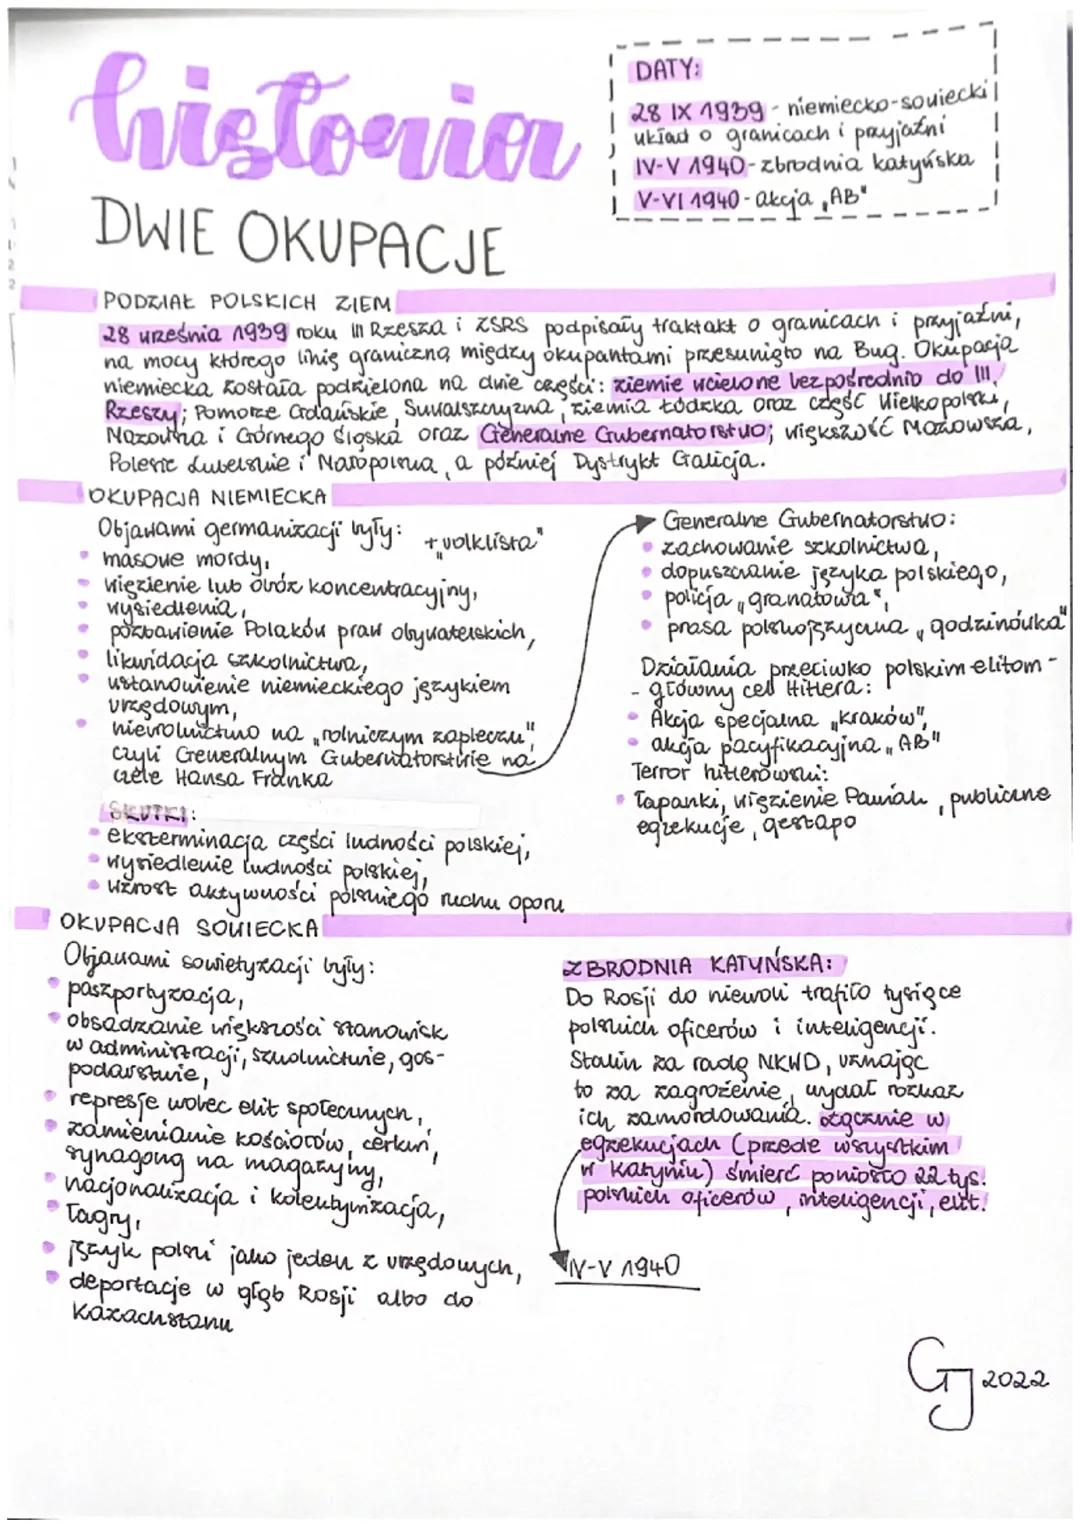 historia
DWIE OKUPACJE
DATY:
28 IX 1939 - niemiecko-sowiecki
układ o granicach i przyjaźni
IV-V 1940 - zbrodnia katyńska
V-VI 1940 - akcja „AB"
PODZIAŁ POLSKICH ZIEM
28 września 1939 roku III Rzesza i ZSRS podpisały traktakt o granicach i przyjaźni,
na mocy którego linię graniczną między okupantami przesunięto na Bug. Okupacja
niemiecka została podzielona na dwie części: ziemie wcielone bezpośrednio do III
Rzeszy; Pomorze Gdańskie, Suwalszczyzna, ziemia Łódzka oraz część Wielkopolski,
Mazowsza i Górnego Śląska oraz Generalne Gubernatorstwo; większość Mazowsza,
Polesie Lubelskie i Małopolska, a później Dystrykt Galicja.
OKUPACJA NIEMIECKA
Objawami germanizacji były: + „volklista"
• masowe mordy,
• więzienie lub obóz koncentracyjny,
• wysiedlenia,
• pozbawienie Polaków praw obywatelskich,
• likwidacja szkolnictwa,
• ustanowienie niemieckiego językiem
urzędowym,
• niewolnictwo na „rolniczym zapleczu",
czyli Generalnym Gubernatorstwie na
czele Hansa Franka
SKUTKI:
• eksterminacja części ludności polskiej,
• wysiedlenie ludności polskiej,
• wzrost aktywności polskiego ruchu oporu
Generalne Gubernatorstwo:
• zachowanie szkolnictwa,
• dopuszczanie języka polskiego,
• policja „granatowa",
• prasa polskojęzyczna „godzinówka"
Działania przeciwko polskim elitom -
- główny cel Hitlera:
• Akcja specjalna „kraków",
• akcja pacyfikacyjna „AB"
Terror hitlerowski:
• Łapanki, więzienie Pawiak, publiczne
egzekucje, gestapo
OKUPACJA SOWIECKA
Objawami sowietyzacji były:
• paszportyzacja,
• obsadzanie większości stanowisk
w administracji, szkolnictwie, gos-
podarstwie,
• represje wobec elit społecznych,
• zamienianie kościołów, cerkwi,
synagong na magazyny,
• nacjonalizacja i kolektywizacja,
• Łagry,
• język polski jako jeden z urzędowych,
• deportacje w głąb Rosji albo do
Kazachstanu
ZBRODNIA KATYŃSKA:
Do Rosji do niewoli trafiło tysiące
polskich oficerów i inteligencji.
Stalin za radą NKWD, uznając
to za zagrożenie, wydał rozkaz
ich zamordowania. Łącznie w
egzekucjach (przede wszystkim
w Katyniu) śmierć poniosło 22 tys.
polskich oficerów, inteligencji, elit.
IV-V 1940
GJ 2022